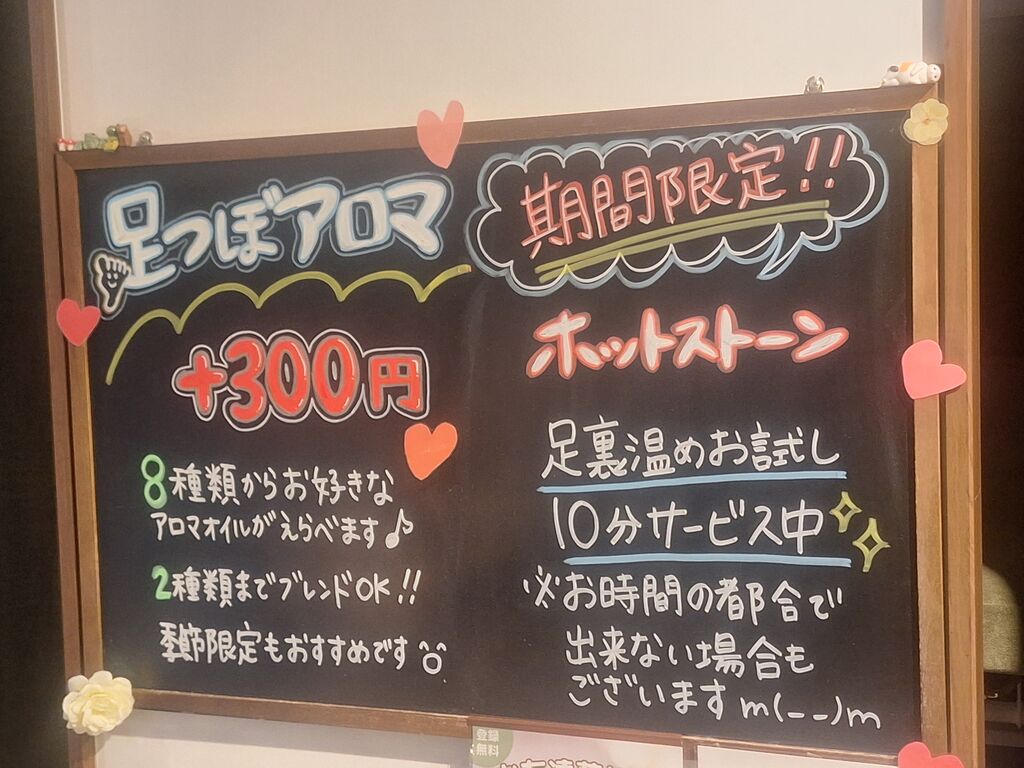 足つぼアロマ
+300円
8種類からお好きな
アロマオイルがえらべます♪
2種類までブレンドOK!!
季節限定もおすすめです
期間限定!!
ホットストーン
足裏温めお試し
10分サービス中
※お時間の都合で
出来ない場合も
ございますm(--)m
登録
無料